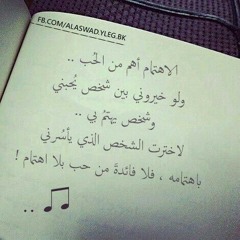 FB.COM/ALASWAD.YLEG.BK
الاهتمام أهم من الحُب ..
ولو خيروني بين شخص يُحبني
وشخص يهتمُ بي ..
لاخترت الشخص الذي يأسُرني
باهتمامه ، فلا فائدةً من حب بلا اهتمام !
..